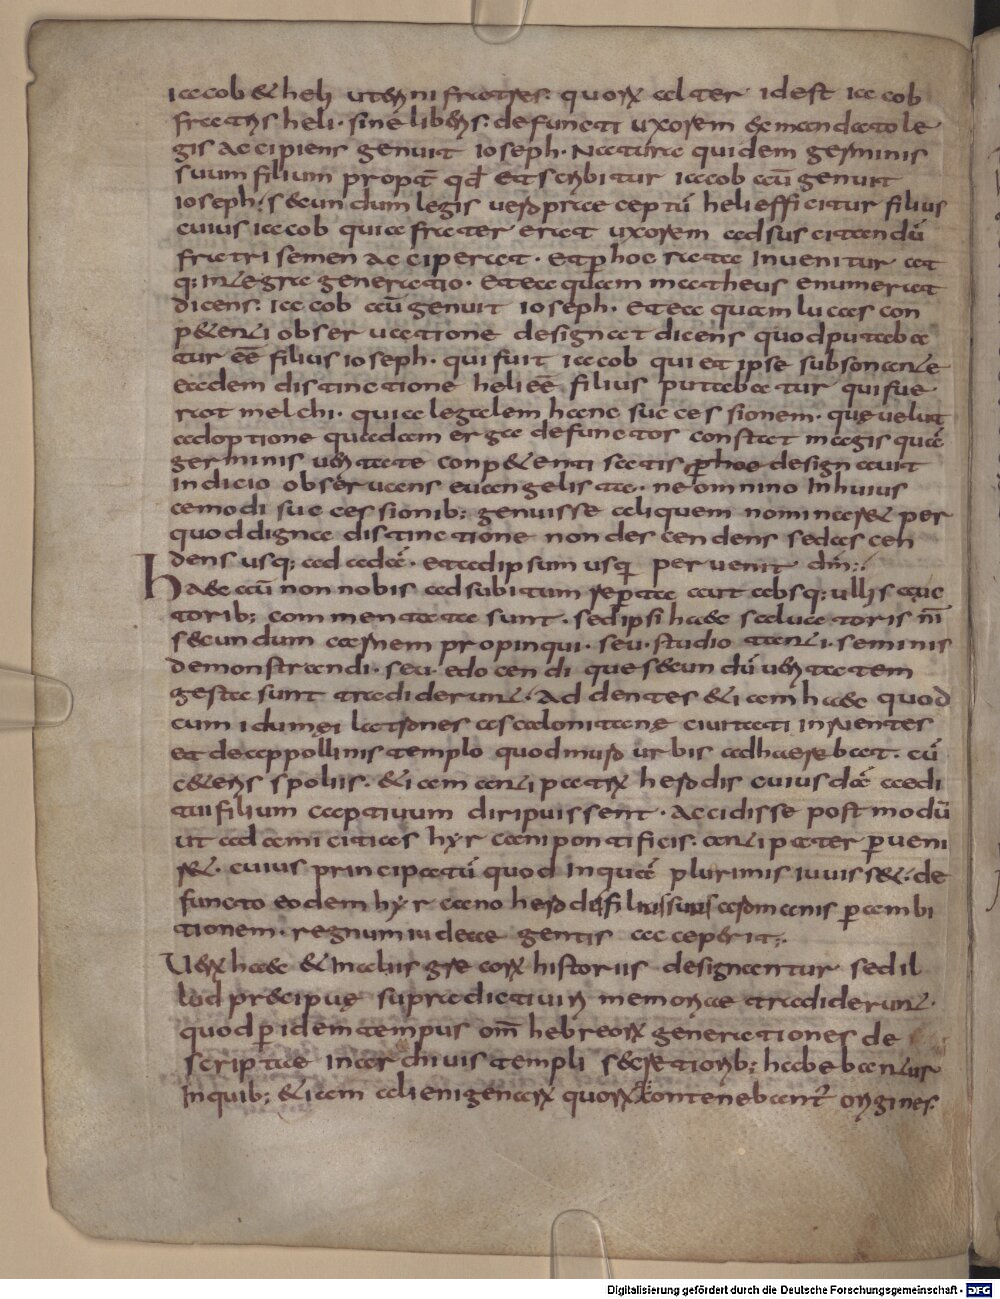 iacob & heli uterini fratres. quorum alter idest iacob
fratris heli. sine liberis. defuncti uxorem ex mandato le
gis accipiens genuit ioseph. Naturae quidem germinis
suum filium propt̄ qđ et scribitur iacob aū genuit
ioseph. secundum legis uero praeceptū heli efficitur filius
cuius iacob quia frater erat uxorem ad suscitandū
fratri semen acciperet. et p hoc ratae inuenitur at
q; integra generatio. et ea quam matheus enumerat
dicens. iacob aū genuit ioseph. et ea quam lucas con
p&enti obseruatione designat dicens quod putaba
tur eē filius ioseph. qui fuit iacob qui et ipse subsonante
eadem distinctione heli eē filius putabatur qui fue
rat melchi. quia legalem hanc successionem. que uelut
adoptione quadam erga defunctos constat magis quā
germinis ueritate conp&enti satis p hoc designauit
indicio obseruans euangelista. ne omnino in huius
cemodi successionib; genuisse aliquem nominar& per
quod digna distinctione non descendens sed ascen
dens usq; ad adā. et ad ipsum usq; peruenit dm̄;
Haec aū non nobis ad subitum reperta aut absq; ullis auc
torib; commentata sunt. sed ipsi haec saluatoris nr̄i
secundum carnem propinqui. seu. studio tanti. seminis
demonstrandi. seu. edocendi que secundū ueritatem
gesta sunt tradiderunt. Addentes &iam haec quod
cum idumei latrones ascalonitane ciuitati inruentes
et de appollinis templo quod muro urbis adhaerebat. cū
c&eris spoliis. &iam antipatrum herodis cuiusdā aedi
tui filium captiuum diripuissent. accidisse postmodū
ut ad amicitias hyrcani pontificis. antipater perueni
r&. cuius principatū quod inquā plurimis iuuiss&. de
functo eodem hyrcano herodes filius suus a romanis per ambi
tionem. regnum iudeae gentis acceperit;
Uerum haec & in aliis grecorum historiis designantur sed il
lud praecipue supradicti uiri memoriae tradiderunt.
quod p idem tempus om̄ hebreorum generationes de
scriptae in archiuis templi secretiorib; habebantur
In quib; &iam alienigenarum quorum contenebant origines.
Digitalisierung gefördert durch die Deutsche Forschungsgemeinschaft - DFG